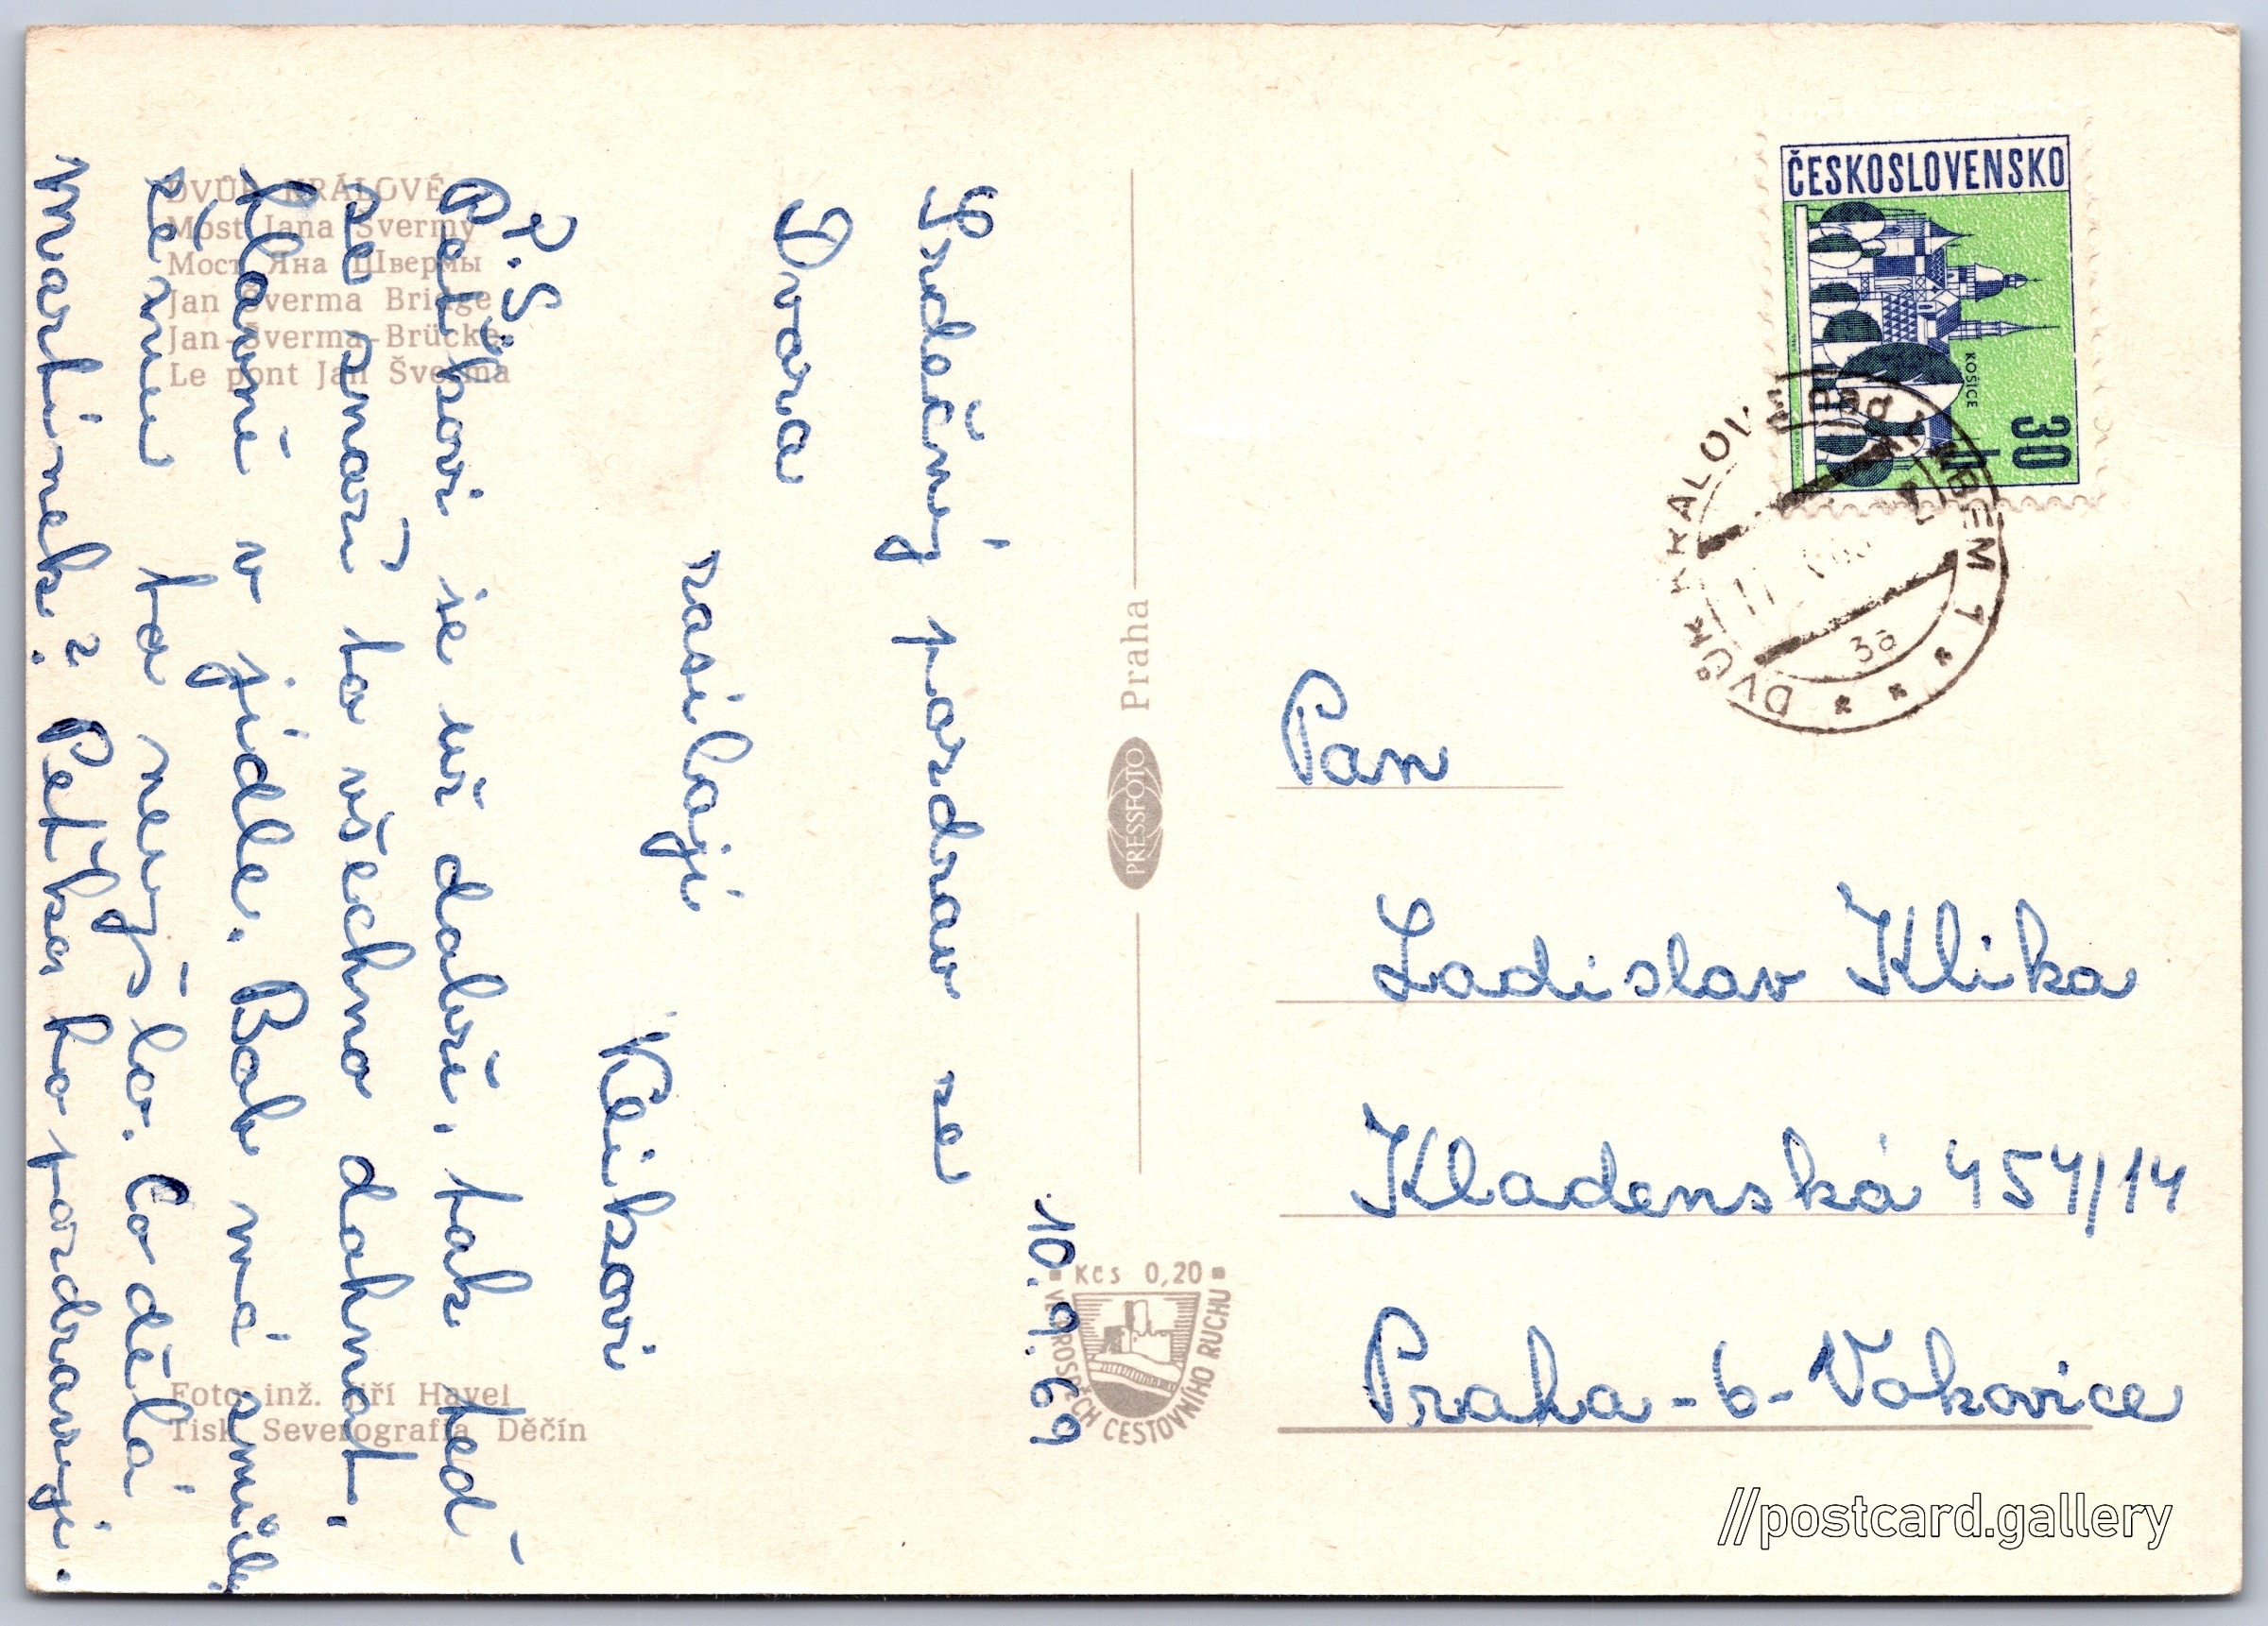 DVŮR KRÁLOVÉ
Most Jana Švermy
Мост Яна Швермы
Jan Šverma Bridge
Jan-Šverma-Brücke
Le pont Jan Šverma
10. 9. 69
Srdečný pozdrav ze
Dvora
zasílají
Klikovi
P.S.
Peťkovi je už dobře, tak teď
se snaží to všechno dohnat,
hlavně v jídle. Bob má smůlu,
ženu to nevyšlo. Co dělá
Martínek? Peťka ho pozdravuje.
Foto inž. Jiří Havel
Tisk Severografia Děčín
Praha
PRESSFOTO
Kčs 0,20
VE PROSPĚCH CESTOVNÍHO RUCHU
ČESKOSLOVENSKO
KOŠICE
30
DVŮR KRÁLOVÉ nad LABEM 1
3a
Pan
Ladislav Klika
Kladenská 454/14
Praha - 6 - Vokovice
//postcard.gallery